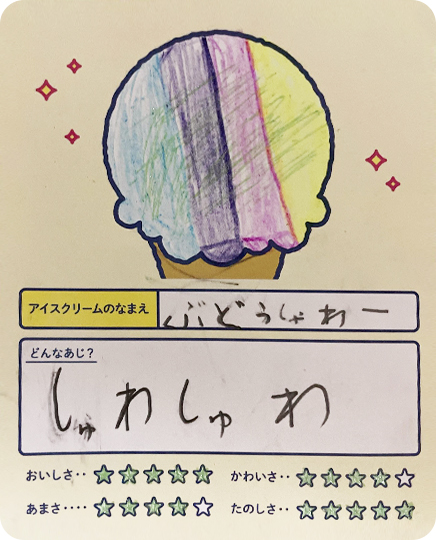 アイスクリームのなまえ ぶどうしゃわー
どんなあじ?
しゅわしゅわ
おいしさ‥ ★★★★★ かわいさ‥ ★★★★☆
あまさ‥‥ ★★★★☆ たのしさ‥ ★★★★★